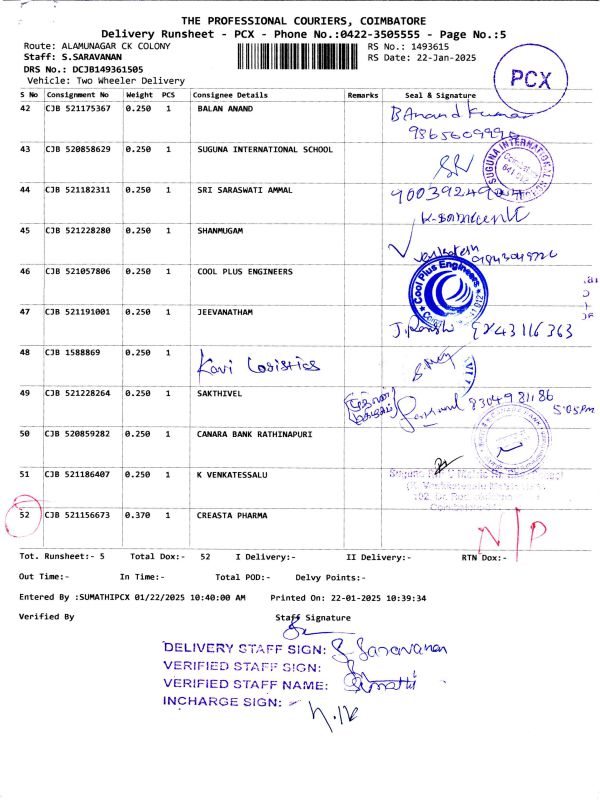 THE PROFESSIONAL COURIERS, COIMBATORE
Delivery Runsheet - PCX - Phone No.:0422-3505555 - Page No.:5
Route: ALAMUNAGAR CK COLONY RS No.: 1493615
Staff: S.SARAVANAN RS Date: 22-Jan-2025
DRS No.: DCJB149361505
Vehicle: Two Wheeler Delivery
PCX
S No Consignment No Weight PCS Consignee Details Remarks Seal & Signature
42 CJB 521175367 0.250 1 BALAN ANAND
BAnand Kumar
43 CJB 520858629 0.250 1 SUGUNA INTERNATIONAL SCHOOL
SUGUNA INTERNATIONAL
Coimbatore
44 CJB 521182311 0.250 1 SRI SARASWATI AMMAL
45 CJB 521228280 0.250 1 SHANMUGAM
46 CJB 521057806 0.250 1 COOL PLUS ENGINEERS
Cool Plus Engineers
47 CJB 521191001 0.250 1 JEEVANATHAM
9843116363
48 CJB 1588869 0.250 1 Kavi Logistics
49 CJB 521228264 0.250 1 SAKTHIVEL
8304981186
5:05PM
50 CJB 520859282 0.250 1 CANARA BANK RATHINAPURI
51 CJB 521186407 0.250 1 K VENKATESSALU
52 CJB 521156673 0.370 1 CREASTA PHARMA
N/P
Tot. Runsheet:- 5 Total Dox:- 52 I Delivery:- II Delivery:- RTN Dox:-
Out Time:- In Time:- Total POD:- Delvy Points:-
Entered By :SUMATHIPCX 01/22/2025 10:40:00 AM Printed On: 22-01-2025 10:39:34
Verified By Staff Signature
DELIVERY STAFF SIGN: S. Saravanan
VERIFIED STAFF SIGN:
VERIFIED STAFF NAME: Sumathi
INCHARGE SIGN: